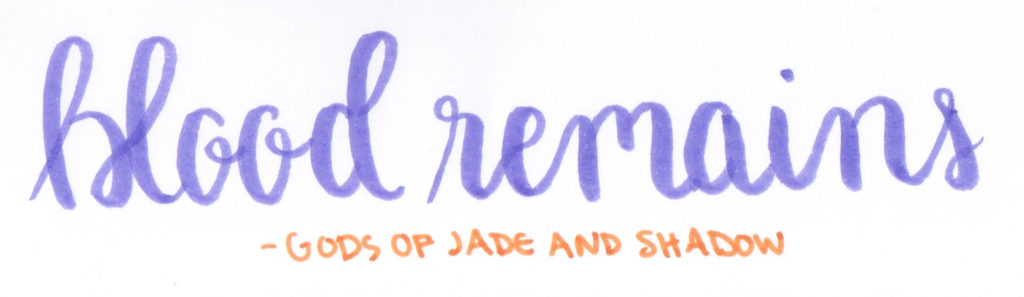 blood remains
- GODS OF JADE AND SHADOW